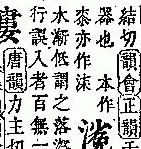 結切韻會正韻
器也 本作
桼亦作沫
水漸低謂之落漈
行誤入者百無一
唐韻力主切